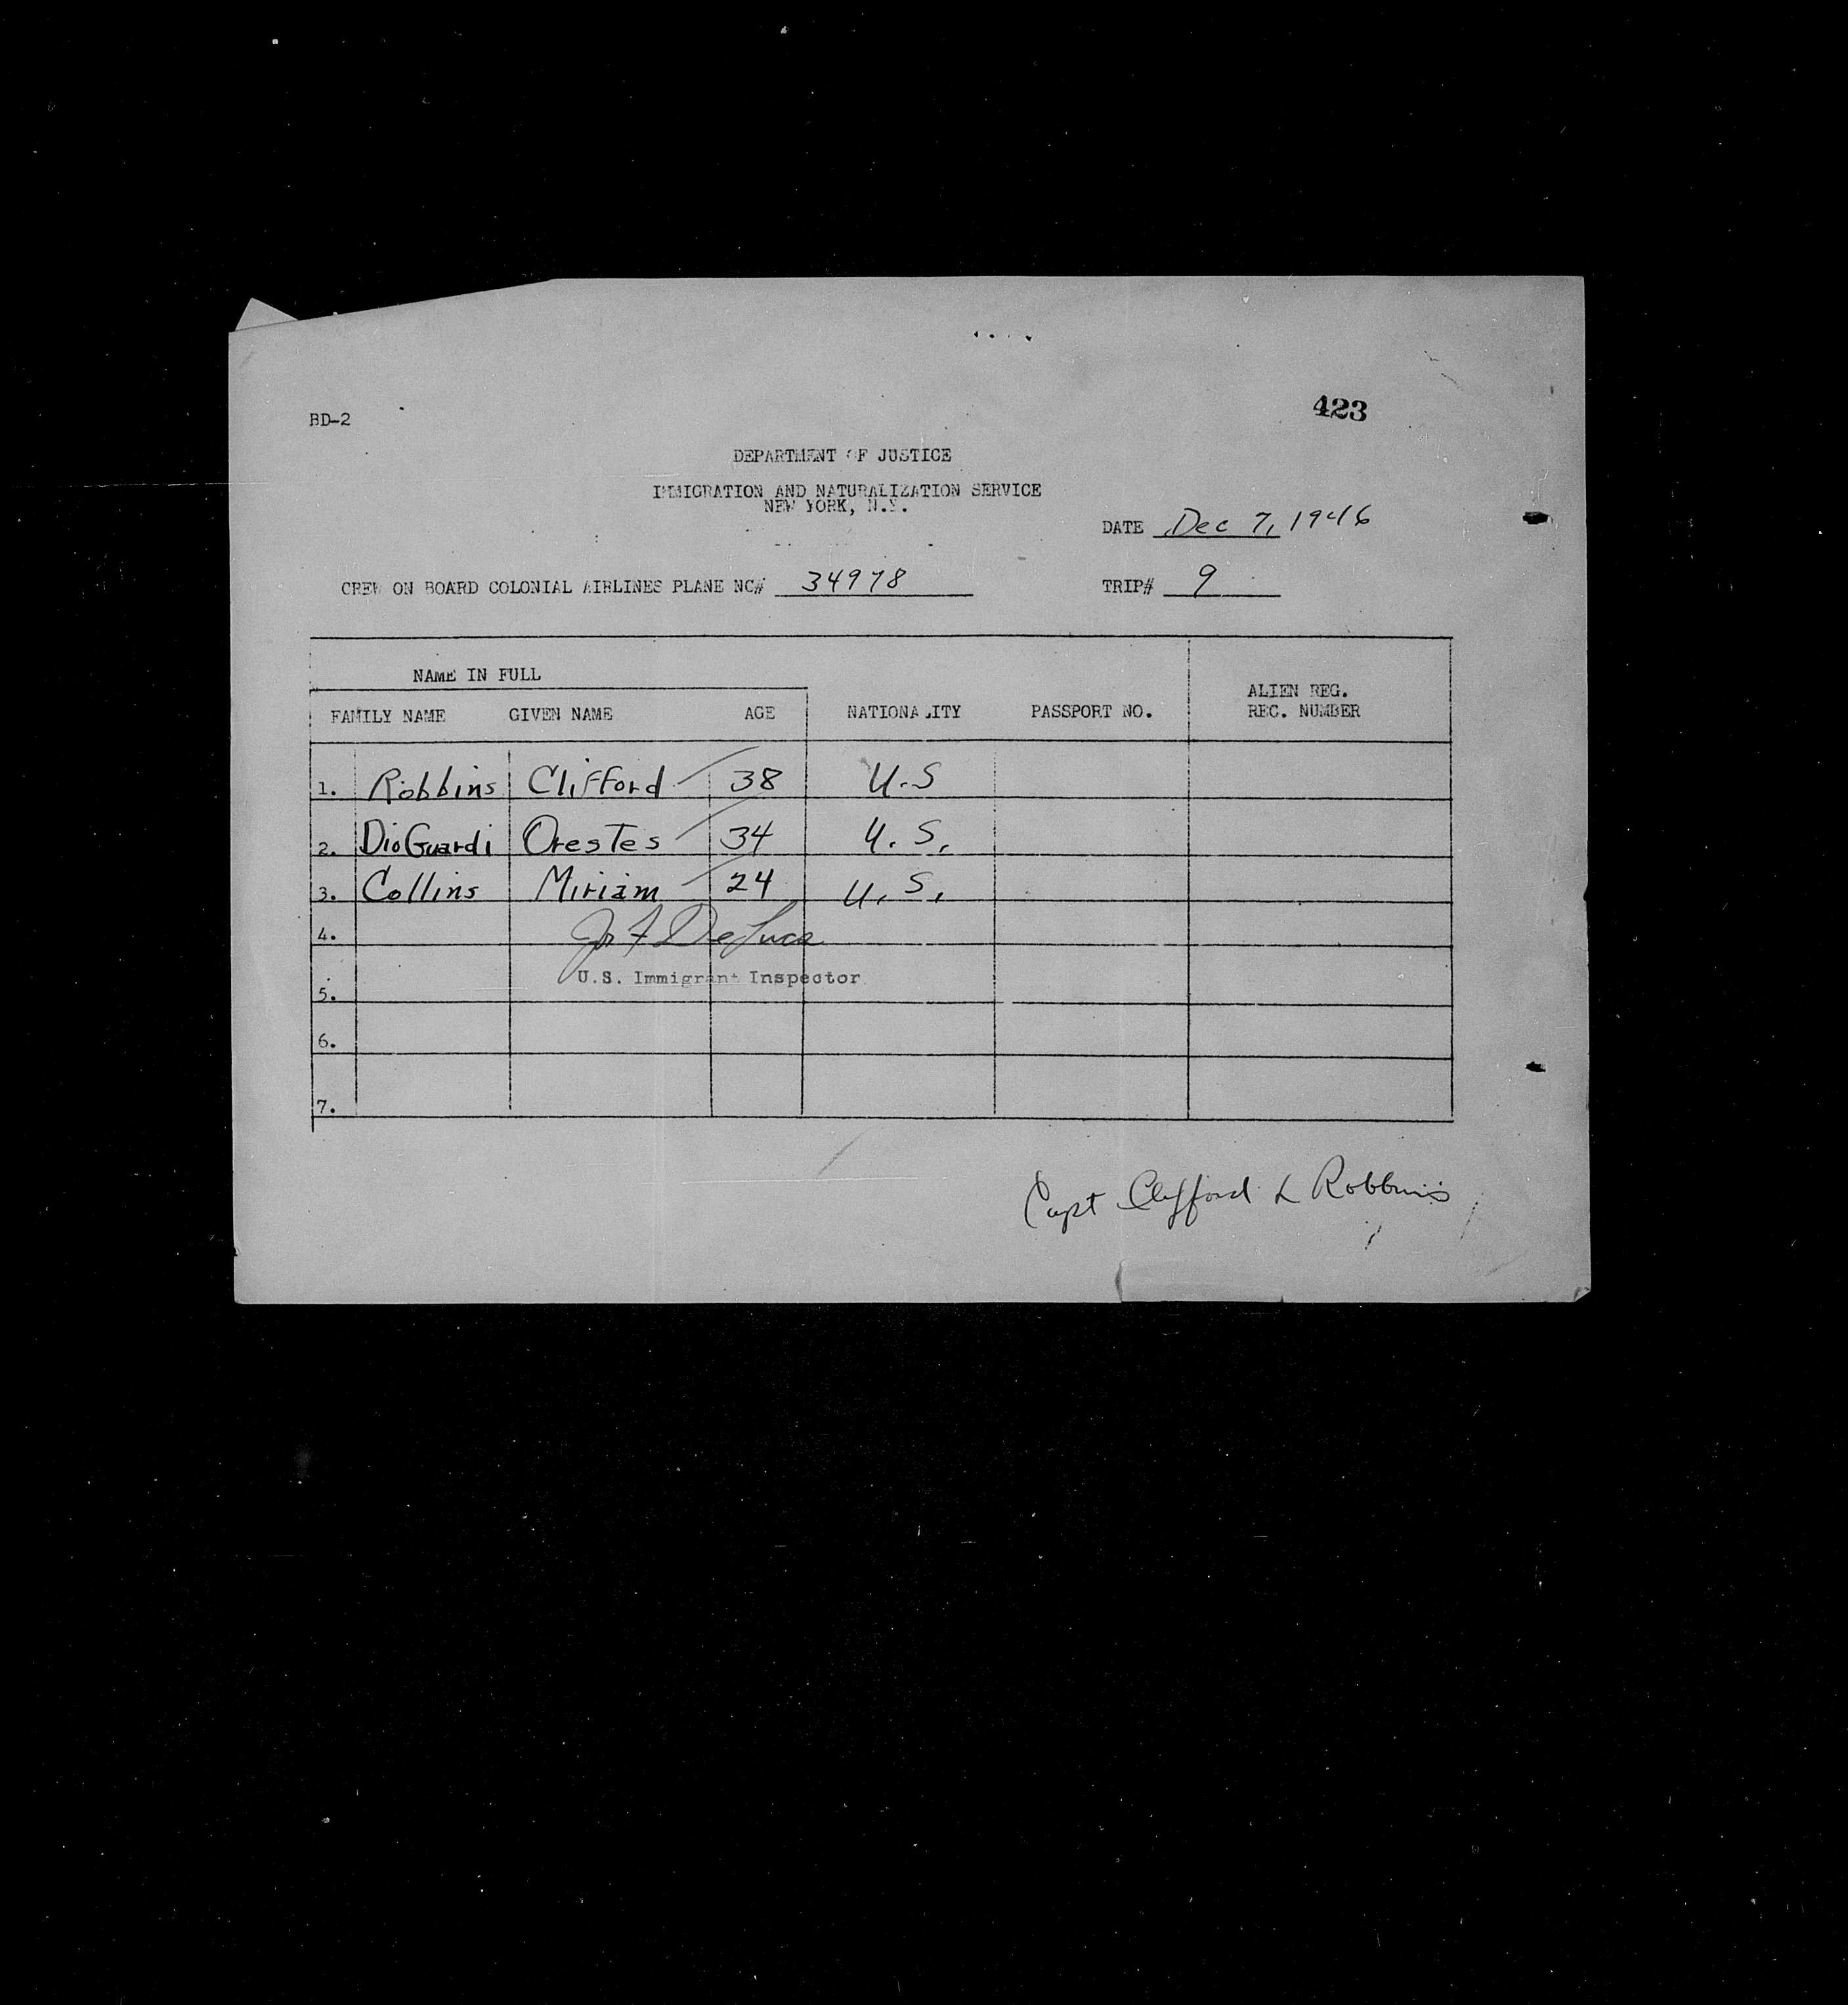 423
BD-2
DEPARTMENT OF JUSTICE
IMMIGRATION AND NATURALIZATION SERVICE
NEW YORK, N.Y.
DATE Dec 7, 1946
CREW ON BOARD COLONIAL AIRLINES PLANE NC# 34978 TRIP# 9
NAME IN FULL
FAMILY NAME GIVEN NAME AGE NATIONALITY PASSPORT NO. ALIEN REG. REC. NUMBER
1. Robbins Clifford 38 U.S
2. DioGuardi Orestes 34 U.S.
3. Collins Miriam 24 U.S.
4. DeLuca
U.S. Immigrant Inspector
5.
6.
7.
Capt Clifford L Robbins